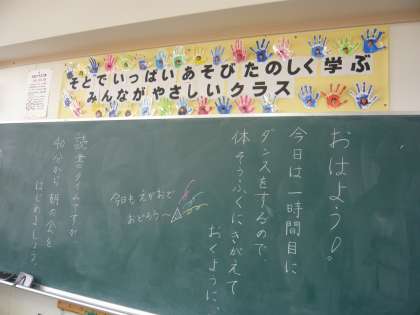 そとでいっぱい あそびたのしく学ぶ
みんながやさしいクラス
おはよう!。
今日は一時間目に
ダンスをするので
体そうふくにきがえて
おくように。
今日もえがおで
おどろう〜
読書タイムですが
40分から朝の会を
はじめましょう。